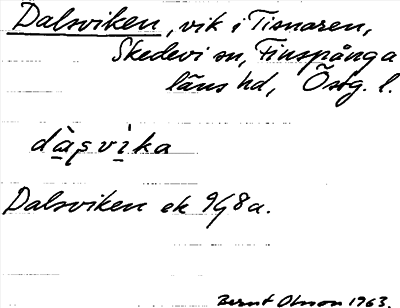 Dalsviken, vik i Tisnaren,
Skedevi sn, Finspånga
läns hd, Östg. l.
dàşvi̠ka
Dalsviken ek 9G8a.
Bernt Olsson 1963.